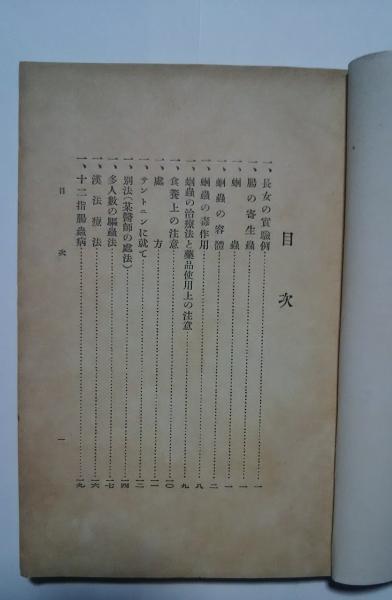 目次
一、長女の實驗例……一
一、腸の寄生蟲……一
一、蛔蟲……一
一、蛔蟲の容體……二
一、蛔蟲の毒作用……八
一、蛔蟲の治療法と藥品使用上の注意……九
一、食養上の注意……一〇
一、處方……一一
一、サントニンに就て……一二
一、別法(某醫師の處法)……一四
一、多人數の驅蟲法……一七
一、漢法療法……一六
一、十二指腸蟲病……一九
目次
一